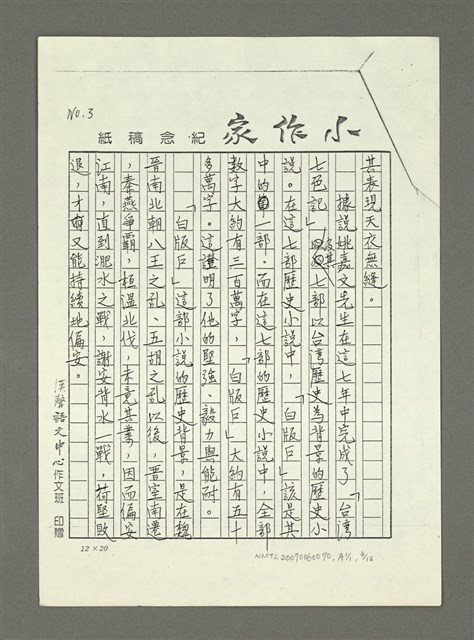 No. 3
小作家
紀念稿紙
其表現天衣無縫。
據說姚嘉文先生在這七年中完成了「台灣
七色記」及其七部以台灣歷史為背景的歷史小
說。在這七部歷史小說中,「白版丘」該是其
中的一部。而在這七部的歷史小說中,全部
數字大約有三百萬字,「白版丘」大約有五十
多萬字。這證明了他的堅強、毅力與能耐。
「白版丘」這部小說的歷史背景,是在魏
晉南北朝八王之亂、五胡之亂以後,晋室南遷
,秦燕爭霸,桓溫北伐,未竟其業,因而偏安
江南,直到淝水之戰,謝安背水一戰,苻堅敗
退,才又能持續地偏安。
漢聲語文中心作文班 印贈
12×20
NMTL20070060070, A1/1, 3/12